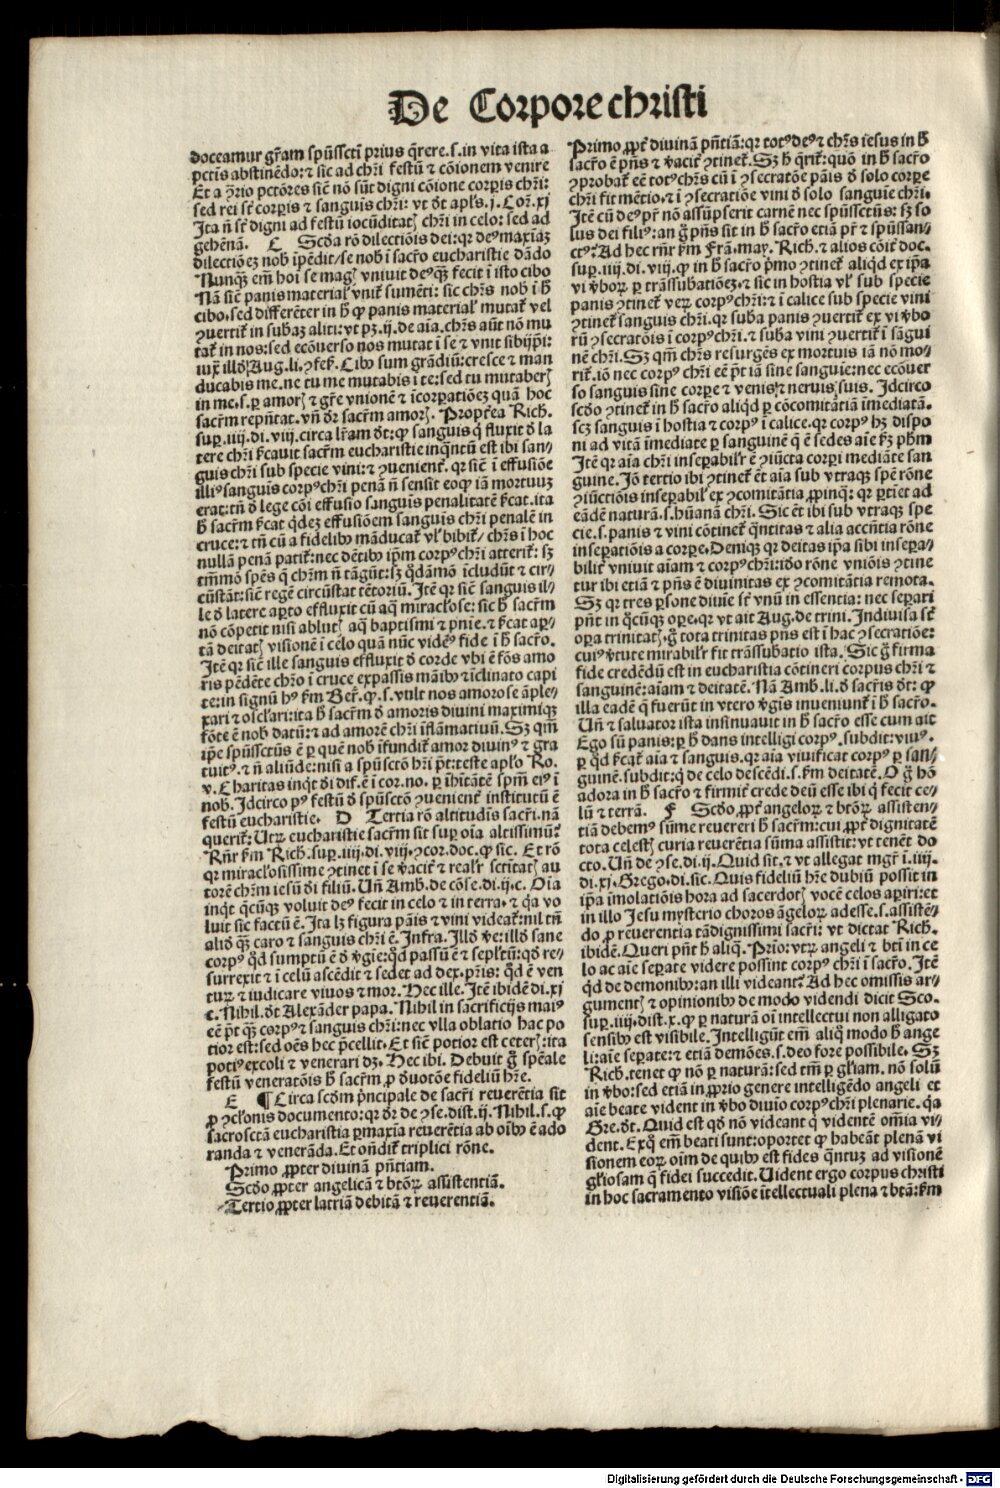 De Corpore christi
doceamur gr̄am spūssctī prius q̄rere.s.in vita ista a
pctīs abstinēdo: ⁊ sic ad chr̄i festū ⁊ cōionem venire
Et a ꝯrio pctōres siē nō sūt digni cōione corpīs chr̄i:
sed rei st̄ corpīs ⁊ sanguīs chr̄i: vt dt̄ apl̄s.j. Cor̄.xj
Ita n̄ st̄ digni ad festū iocūditatꝭ chr̄i in celo: sed ad
gehēnā. C Scd̄a rō dilectiōis dei: qr deꝰ maxīaꝫ
dilectiōeꝫ nob̄ īpēdit/se nob̄ ī sacr̄o eucharistie dādo
Nunqꝫ em̄ hoi se magꝭ vniuit deꝰqꝫ fecit ī isto cibo
Nā siē panis material̄ vnit̄ sumēti: sic chr̄s nob̄ ī h̄
cibo, sed differēter in h̄ ꝙ panis material̄ mutat̄ vel
ꝯuertit̄ in sub̄aꝫ aliti: vt pꝫ.ij.de aīa.chr̄s aūt nō mu
tat̄ in nos: sed ecōuerso nos mutat ī se ⁊ vnit sibiip̄i:
iux̄ illd̄ Aug.li.ꝯfeſ̄. Cibꝰ sum grādiū: cresce ⁊ man
ducabis me.ne tu me mutabis ī te: sed tu mutaberꝭ
in me.s.ꝑ amorꝭ ⁊ gr̄e vnionē ⁊ īcorpatiōeꝫ quā hoc
sacr̄m repn̄tat. vn̄ dr̄ sacr̄m amorꝭ. Proptēa Rich.
sup̄.iiij.di.viij.circa lr̄am dt̄: ꝙ sanguis q̄ fluxit d̄ la
tere chr̄i ſ̄cauit sacr̄m eucharistie inqn̄tū est ibi san-
guis chr̄i sub specie vini: ⁊ ꝯuenient̄. qr siē ī effusiōe
illiꝰ sanguīs corpꝰ chr̄i penā n̄ sensit eoꝙ iā mortuuꝫ
erat: tn̄ d̄ lege cōi effusio sanguīs penalitatē ſ̄cat. ita
h̄ sacr̄m ſ̄cat q̄dez effusiōem sanguīs chr̄i penalē in
cruce: ⁊ tn̄ cū a fidelibꝰ māducat̄ vl̄ bibit̄/ chr̄s ī hoc
nullā penā patit̄: nec dētibꝰ ip̄m corpꝰ chr̄i atterit̄: sꝫ
tm̄mō spēs q̄ chr̄m n̄ tāgūt: sꝫ q̄dāmō īcludūt ⁊ cir-
cūstāt: siē regē circūstat tētoriū. Itē qr siē sanguis il-
le d̄ latere aꝑto effluxit cū aq̄ miracl̄ose: sic h̄ sacr̄m
nō cōpetit nisi ablutꝭ aq̄ baptismi ⁊ pnīe.⁊ ſ̄cat aꝑ-
tā deitatꝭ visionē ī celo quā nūc videt̄ fide ī h̄ sacr̄o.
Itē qr siē ille sanguis effluxit d̄ corde vbi ē fōs amo
ris pēdēte chr̄o ī cruce expassis māibꝰ ⁊ īclinato capi
te: in signū hꝰ ẜm Ber̄.ꝙ.s.vult nos amorose āple-
xari ⁊ oscl̄ari: ita h̄ sacr̄m d̄ amoris diuini maximiqꝫ
fōte ē nob̄ datū: ⁊ ad amorē chr̄i īflāmatiuū. Sꝫ qm̄
ip̄e spūssctūs ē ꝑ quē nob̄ īfundit̄ amor diuinꝰ ⁊ gra
tuitꝰ.⁊ n̄ aliūde: nisi a spūsctō chr̄i pt̄: teste apl̄o Ro.
v. Charitas inqt̄ di dif.ē ī cor.no.ꝑ ihītātē spm̄ eiꝰ ī
nob̄. Idcirco pꝰ festū d̄ spūsctō ꝯuenient̄ institutū ē
festū eucharistie. D Tertia rō altitudīs sacr̄i.nā
querit̄: Utꝝ eucharistie sacr̄m sit sup̄ oīa altissimū?
Rn̄r ẜm Rich.sup̄.iiij.di.viij.⁊ cor.doc.ꝙ sic. Et rō
qr miracl̄osissime ꝯtinet ī se v̄acit̄ ⁊ real̄r sctitatꝭ au
torē chr̄m iesū di filiū. Un̄ Amb̄.de cōse.di.ij.c. Oīa
inqt̄ q̄cūqꝫ voluit deꝰ fecit in celo ⁊ in terra.⁊ q̄a vo
luit sic factū ē. Ita lꝫ figura pāis ⁊ vini videat̄: nil tn̄
aliō qꝫ caro ⁊ sanguis chr̄i ē. Infra. Illd̄ v̄e: illd̄ sane
corpꝰ qd̄ sumptū ē d̄ v̄gīe: qd̄ passū ē ⁊ sepl̄tū: qd̄ re-
surrexit ⁊ ī celū ascēdit ⁊ sedet ad dex.pr̄is: qd̄ ē ven
turꝫ ⁊ iudicare viuos ⁊ mor. Hec ille. Itē ibidē di.xj
c. Nihil. dt̄ Alexāder papa. Nihil in sacrificijs maiꝰ
eē pt̄ qꝫ corpꝰ ⁊ sanguis chr̄i: nec vlla oblatio hac po
tior est: sed oēs hec p̄cellit. Et siē potior est ceterꝭ: ita
potiꝰ excoli ⁊ venerari dꝫ. Hec ibi. Debuit g̊ spēale
festū veneratōis h̄ sacr̄m ꝓ d̄uotōe fideliū hr̄e.
E ¶ Circa scd̄m pncipale de sacr̄i reuerētia sit
ꝓ ꝯcl̄onis documento: qr dr̄ de ꝯse.dist.ij. Nihil.s.ꝙ
sacrosctā eucharistia ꝑmaxīa reuerētia ab oībꝰ ē ado
randa ⁊ venerāda. Et on̄dit̄ triplici rōne.
Primo ꝓpter diuinā pn̄tiam.
Scd̄o ꝓpter angelicā ⁊ btōꝝ assistentiā.
Tertio ꝓpter latriā debitā ⁊ reuerentiā.
Primo ꝓpt̄ diuinā pn̄tiā: qr totꝰ deꝰ ⁊ chr̄s iesus in h̄
sacr̄o ē pn̄s ⁊ v̄acit̄ ꝯtinet̄. Sꝫ h̄ q̄rit̄: quō in h̄ sacr̄o
ꝯprobat̄ eē totꝰ chr̄s cū ī ꝯsecratōe pāis d̄ solo corpe
chr̄i fit mētio.⁊ ī ꝯsecratiōe vini d̄ solo sanguīe chr̄i.
Itē cū deꝰ pr̄ nō assūpserit carnē nec spūssctūs: sꝫ so
lus dei filiꝰ: an g̊ pn̄s sit in h̄ sacr̄o etiā pr̄ ⁊ spūssan-
ctꝰ? Ad hec rn̄r ẜm Frā.may. Rich.⁊ alios cōit̄ doc.
sup̄.iiij.di.viij.ꝙ in h̄ sacr̄o p̄mo ꝯtinet̄ aliqd̄ ex ip̄a
vi v̄boꝝ ꝑ trāssubatiōeꝫ.⁊ sic in hostia vl̄ sub specie
panis ꝯtinet̄ verꝫ corpꝰ chr̄i: ⁊ ī calice sub specie vini
ꝯtinet̄ sanguis chr̄i.qr sub̄a panis ꝯuertit̄ ex vi v̄bo
rū ꝯsecratōis ī corpꝰ chr̄i.⁊ sub̄a vini ꝯuertit̄ ī sāgui
nē chr̄i. Sꝫ qm̄ chr̄s resurgēs ex mortuis iā nō mo/
rit̄.iō nec corpꝰ chr̄i eē pt̄ iā sine sanguīe: nec ecōuer
so sanguis sine corpe ⁊ venis ⁊ neruis suis. Idcirco
scd̄o ꝯtinet̄ in h̄ sacr̄o aliqd̄ ꝑ cōcomitātiā īmediatā.
scꝫ sanguis ī hostia ⁊ corpꝰ ī calice.qr corpꝰ hꝫ dispo
ni ad vitā īmediate ꝑ sanguinē q̄ ē sedes aīe ẜꝫ phm
Itē qr aīa chr̄i inseꝑabil̄r ē ꝯiūcta corpi mediāte san
guine. Iō tertio ibi ꝯtinet̄ ēt aīa sub vtraqꝫ spē rōne
ꝯiūctiōis inseꝑabil̄ ex ꝯcomitātia ꝓpinq̄: qr ꝑtiēt ad
eādē naturā.s.hūanā chr̄i. Sic ēt ibi sub vtraqꝫ spe
cie.s.panis ⁊ vini cōtinet̄ qn̄titas ⁊ alia accn̄tia rōne
inseꝑatiōis a corpe. Deniqꝫ qr deitas ip̄a sibi inseꝑa/
bilit̄ vniuit aīam ⁊ corpꝰ chr̄i: idō rōne vniōis ꝯtine
tur ibi etiā ⁊ pn̄s ē diuinitas ex ꝯcomitātia remota.
Sꝫ qr tres ꝑsone diuīe st̄ vnū in essentia: nec seꝑari
pn̄t in q̄cūqꝫ oꝑe.qr vt ait Aug.de trini. Indiuisa st̄
oꝑa trinitatꝭ.g̊ tota trinitas pn̄s est ī hac ꝯsecratiōe:
cuiꝰ v̄tute mirabil̄r fit trāssubatio ista. Sic g̊ firma
fide credēdū est in eucharistia cōtineri corpus chr̄i ⁊
sanguinē: aīam ⁊ deitatē. Nā Amb̄.li.d̄ sacr̄is dt̄: ꝙ
illa eadē q̄ fuerūt in vtero v̄gīs inueniunt̄ ī h̄ sacr̄o.
Un̄ ⁊ saluator ista insinuauit in h̄ sacr̄o esse cum ait
Ego sū panis: ꝑ h̄ dans intelligi corpꝰ.subdit: viuꝰ.
ꝑ qd̄ ſ̄cat̄ aīa ⁊ sanguis.qr aīa viuificat corpꝰ ꝑ san/
guinē.subdit: q̄ de celo descēdi.s.ẜm deitatē. O g̊ hō
adora in h̄ sacr̄o ⁊ firmit̄ crede deū esse ibi q̄ fecit ce/
lū ⁊ terrā. F Scd̄o, ꝓpt̄ angeloꝝ ⁊ btōꝝ assisten/
tiā debemꝰ sūme reuereri h̄ sacr̄m: cui ꝓpt̄ dignitatē
tota celestꝭ curia reuerētia sūma assistit: vt tenēt do
cto. Un̄ de ꝯse.di.ij. Quid sit.⁊ vt allegat mgr̄ ī.iiij.
di.xj. Grego.di.sic. Quis fideliū hr̄e dubiū possit in
ip̄a imolatiōis hora ad sacerdotꝭ vocē celos aꝑiri: et
in illo Jesu mysterio choros āgeloꝝ adesse.s.assistē/
do ꝓ reuerentia tā dignissimi sacr̄i: vt dictat Rich.
ibidē. Queri pn̄t h̄ aliq̄. Prīo: vtꝝ angeli ⁊ btī in ce
lo ac aīe seꝑate videre possint corpꝰ chr̄i ī sacr̄o. Itē
qd̄ de demonibꝰ: an illi videant? Ad hec omissis ar/
gumentꝭ ⁊ opinionibꝰ de modo videndi dicit Sco.
sup̄.iiij.dist.x.ꝙ ꝑ naturā oī intellectui non alligato
sensibꝰ est visibile. Intelligūt em̄ aliq̄ modo h̄ ange
li: aīe seꝑate: ⁊ etiā demōes.s.deo fore possibile. Sꝫ
Rich.tenet ꝙ nō ꝑ naturā: sed tm̄ ꝑ gl̄iam. nō solū
in v̄bo: sed etiā in ꝓprio genere intelligēdo angeli et
aīe beate vident in v̄bo diuīo corpꝰ chr̄i plenarie. q̄a
Gre.dt̄. Quid est qd̄ nō videant q̄ videntē om̄ia vi/
dent. Ex q̊ em̄ beati sunt: oportet ꝙ habeāt plenā vi
sionem eoꝝ oīm de quibꝰ est fides qn̄tuꝫ ad visionē
gl̄iosam q̄ fidei succedit. Uident ergo corpus christi
in hoc sacramento visiōe ītellectuali plena ⁊ btā: ẜm
Digitalisierung gefördert durch die Deutsche Forschungsgemeinschaft - DFG